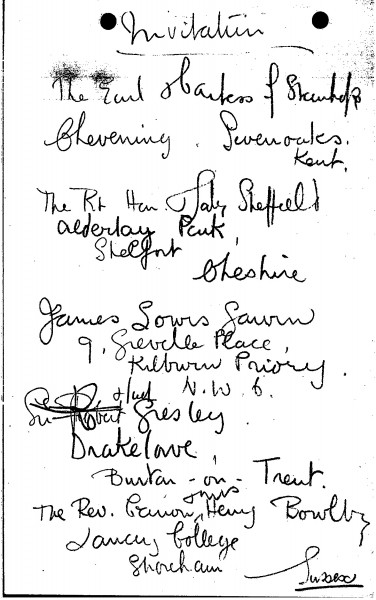 Invitation
The Earl & Countess of Stanhope
Chevening. Sevenoaks.
Kent.
The Rt Hon. Lady Sheffield
Alderley Park,
Cheshire
James Lewis
9, Greville Place,
Kilburn Priory.
N.W. 6.
Sir Robert & Lady Gresley.
Drakelowe,
Burton-on-Trent.
The Rev. Canon Henry Bowlby
Lancing College
Shoreham
Sussex